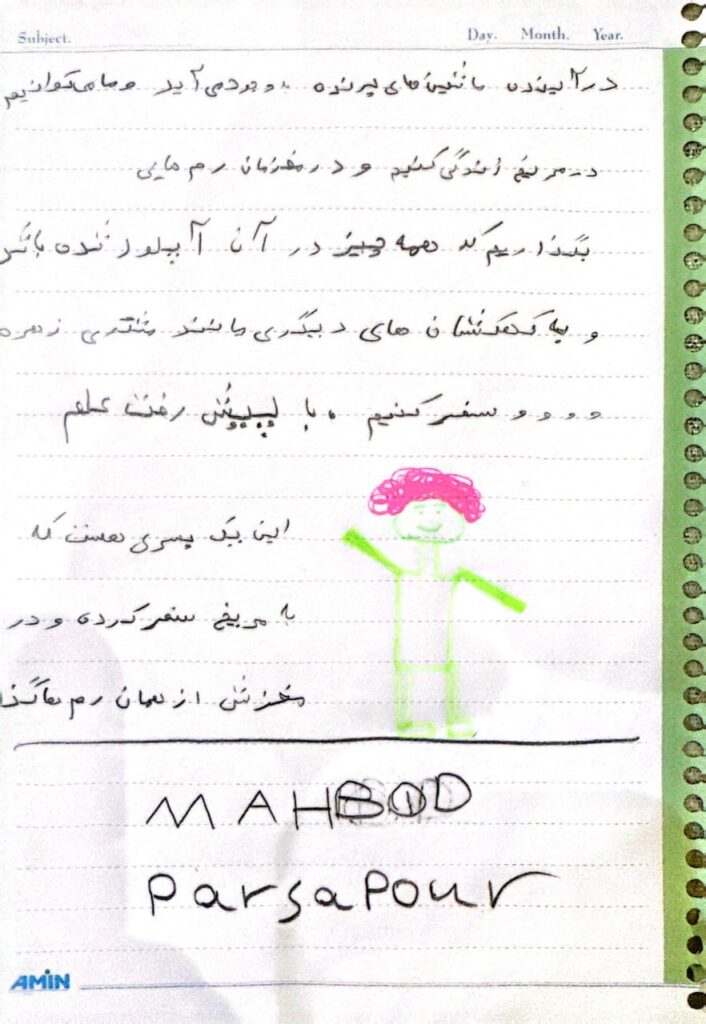 Subject. Day. Month. Year.
در آینده ماشین های پرنده بوجود می آید و ما می توانیم
در مریخ زندگی کنیم و در مغزمان رم هایی
بگذاریم که همه چیز در آن آپلود شده باش
و به کهکشان های دیگری مانند مشتری زهره
و و و و سفر کنیم . با پیش رفت علم
این یک پسری هست که
به مریخ سفر کردی و در
مغزش از همان رم ها گذا
MAHBOD
ParsaPour
AMIN